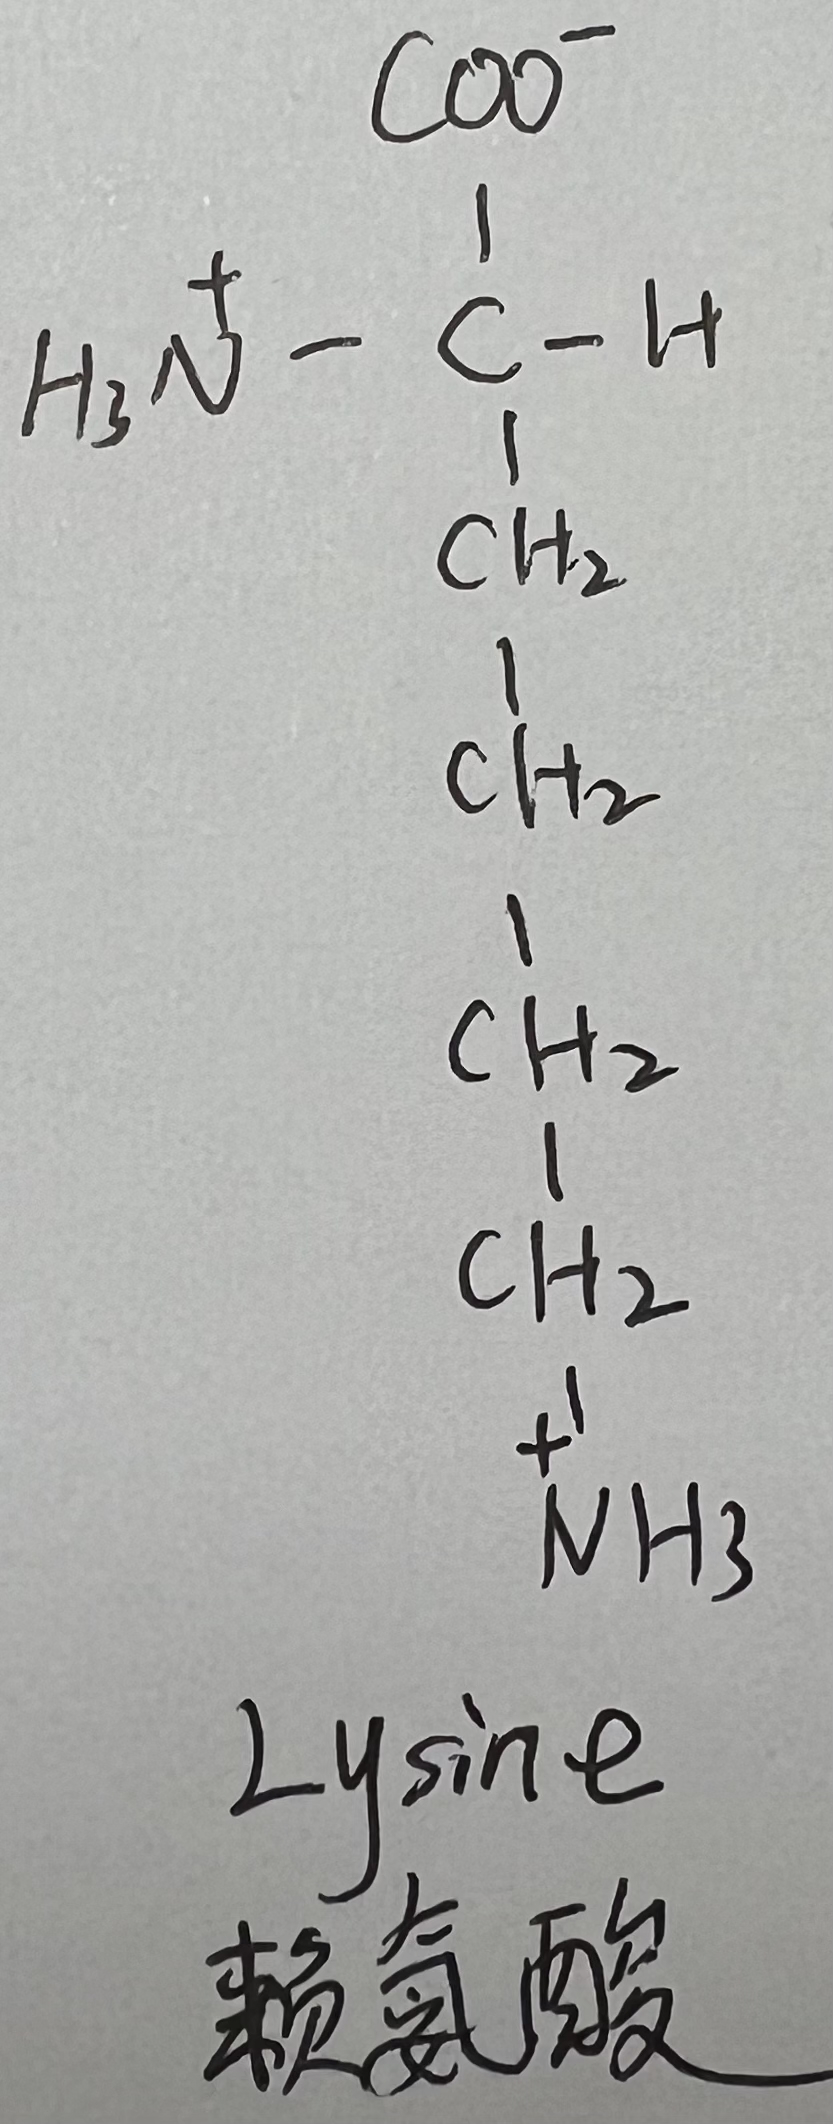 COO⁻
|
H₃N⁺ - C - H
|
CH₂
|
CH₂
|
CH₂
|
CH₂
|
⁺NH₃
Lysine
赖氨酸